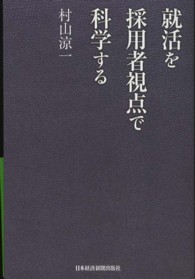 就活を
採用者視点で
科学する
村山涼一
日本経済新聞出版社